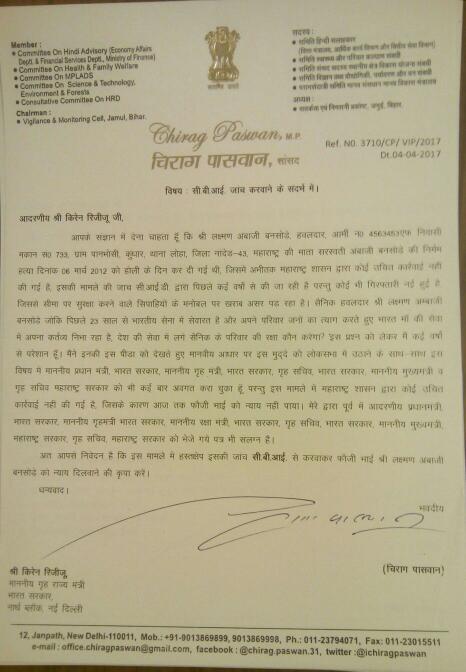 Member :
• Committee On Hindi Advisory (Economy Affairs
Dept. & Financial Services Dept., Ministry of Finance)
• Committee On Health & Family Welfare
• Committee On MPLADS
• Committee On Science & Technology,
Environment & Forests
• Consultative Committee On HRD
Chairman :
• Vigilance & Monitoring Cell, Jamui, Bihar.
सदस्य :
• समिति हिन्दी सलाहकार
(वित्त मंत्रालय, आर्थिक कार्य विभाग और वित्तीय सेवा विभाग)
• समिति स्वास्थ्य और परिवार कल्याण संबंधी
• समिति संसद सदस्य स्थानीय क्षेत्र विकास योजना संबंधी
• समिति विज्ञान तथा प्रौद्योगिकी, पर्यावरण और वन संबंधी
• परामर्शदात्री समिति मानव संसाधन विकास मंत्रालय
अध्यक्ष :
• सतर्कता एवं निगरानी प्रकोष्ट, जमुई, बिहार.
सत्यमेव जयते
Chirag Paswan, M.P.
चिराग पासवान, सांसद
Ref. N0. 3710/CP/ VIP/2017
Dt.04-04-2017
विषय : सी.बी.आई. जांच करवाने के संदर्भ में।
आदरणीय श्री किरेन रिजीजू जी,
आपके संज्ञान में देना चाहता हूँ कि श्री लक्ष्मण अंबाजी बनसोडे, हवलदार, आर्मी न0 4563453एफ निवासी
मकान स0 733, ग्राम पानभोसी, कुंधार, थाना लोहा, जिला नांदेड-43, महाराष्ट्र की माता सरस्वती अंबाजी बनसोडे की निर्मम
हत्या दिनांक 06 मार्च 2012 को होली के दिन कर दी गई थी, जिसमें अभीतक महाराष्ट्र शासन द्वारा कोई उचित कार्रवाई नहीं
की गई है, इसकी मामले की जांच सीआईडी द्वारा पिछले कई वर्षों से की जा रही है परन्तु कोई भी गिरफ्तारी नई हुई है,
जिससे सीमा पर सुरक्षा करने वाले सिपाहियों के मनोबल पर खराब असर पड़ रहा है। सैनिक हवलदार श्री लक्ष्मण अम्बाजी
बनसोडे जोकि पिछले 23 साल से भारतीय सेना में सेवारत है और अपने परिवार जनों का त्याग करते हुए भारत माँ की सेवा
में अपना कर्तव्य निभा रहा है, देश की सेवा में लगे सैनिक के परिवार की रक्षा कौन करेगा? इस प्रश्न को लेकर में कई वर्षों
से परेशान हूँ। मैंने इनकी इस पीडा को देखते हुए मानवीय आधार पर इस मुद्दे को लोकसभा में उठाने के साथ-साथ इस
विषय में माननीय प्रधान मंत्री, भारत सरकार, माननीय गृह मंत्री, भारत सरकार, माननीय रक्षा मंत्री, भारत सरकार, माननीय मुख्यमंत्री व
गृह सचिव महाराष्ट्र सरकार को भी कई बार अवगत करा चुका हूँ परन्तु इस मामले में महाराष्ट्र शासन द्वारा कोई उचित
कार्रवाई नहीं की गई है, जिसके कारण आज तक फौजी भाई को न्याय नही पाया। मेरे द्वारा पूर्व में आदरणीय प्रधानमंत्री,
भारत सरकार, माननीय गृहमंत्री भारत सरकार, माननीय रक्षा मंत्री, भारत सरकार, गृह सचिव, भारत सरकार, माननीय मुख्यमंत्री,
महाराष्ट्र सरकार, गृह सचिव, महाराष्ट्र सरकार को भेजे गये पत्र भी संलग्न है।
अतः आपसे निवेदन है कि इस मामले में हस्तक्षेप इसकी जांच सी.बी.आई. से करवाकर फौजी भाई श्री लक्ष्मण अंबाजी
बनसोडे को न्याय दिलवाने की कृपा करें।
धन्यवाद।
भवदीय
(चिराग पासवान)
श्री किरेन रिजीजू,
माननीय गृह राज्य मंत्री
भारत सरकार,
नार्थ ब्लॉक, नई दिल्ली
12, Janpath, New Delhi-110011, Mob.: +91-9013869899, 9013869998, Ph.: 011-23794071, Fax: 011-23015511
e-mail : office.chiragpaswan@gmail.com, facebook : @chirag.paswan.31, twitter :@ichiragpaswan